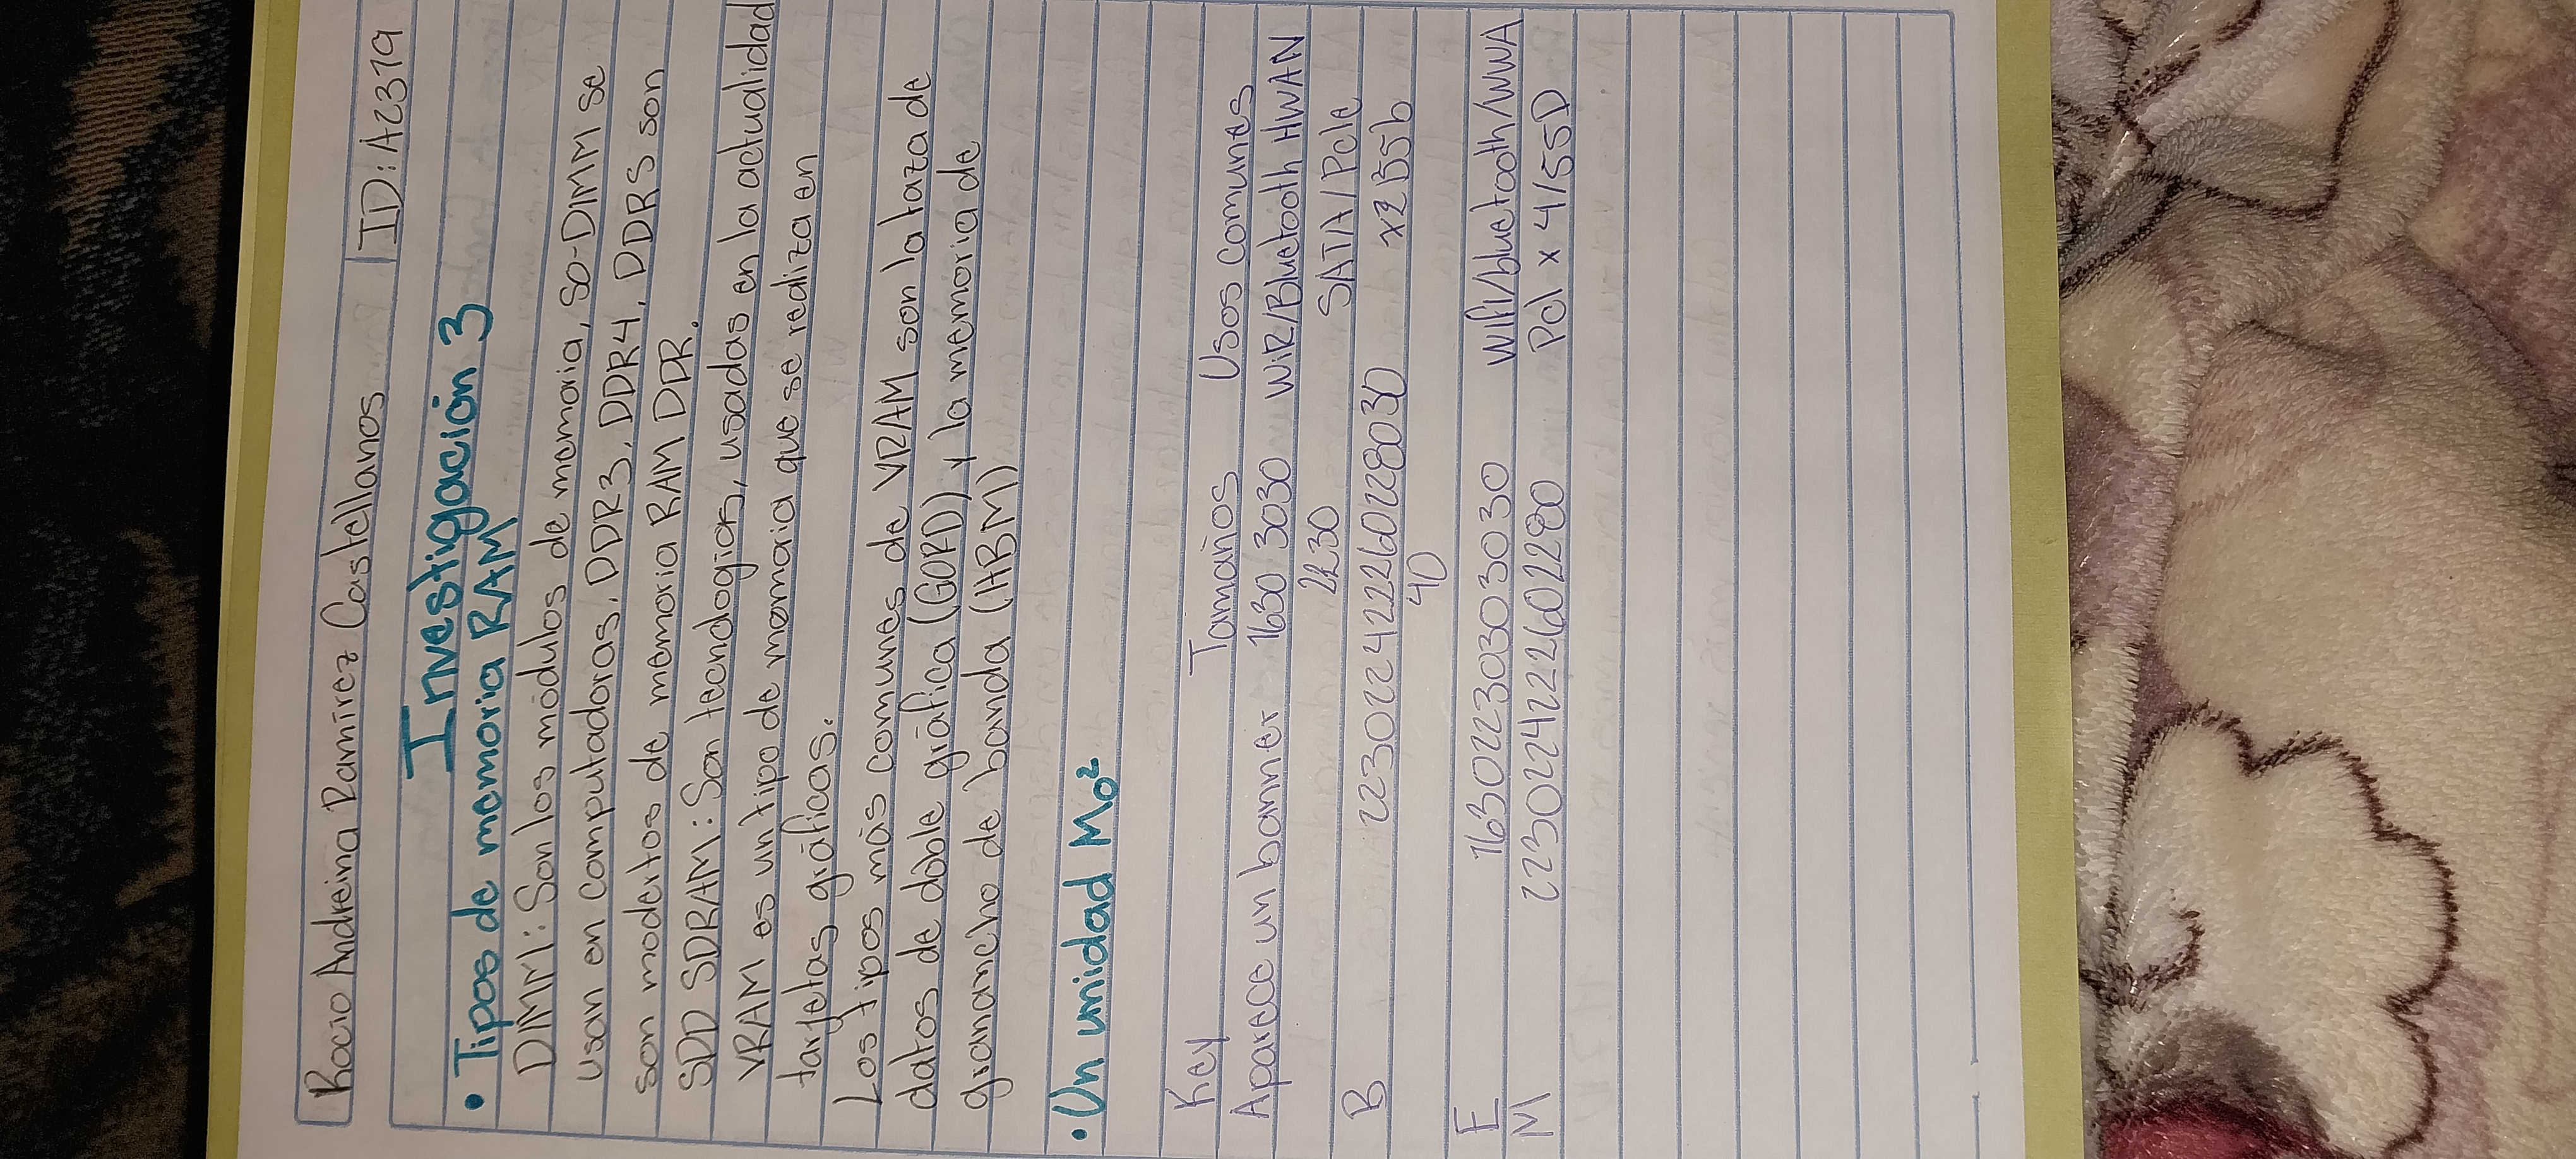 Rocio Andreina Ramírez Castellanos ID: A2319
Investigación 3
• Tipos de memoria RAM
DIMM: Son los módulos de memoria, so-DIMM se
usan en computadoras, DDR3, DDR4, DDR5 son
son modertos de memoria RAM DDR.
SDD SDRAM: Son tecnologías, usadas en la actualidad
VRAM es un tipo de memoria que se realiza en
tarjetas gráficas.
Los tipos más comunes de VRAM son la taza de
datos de doble gráfica (GORD) y la memoria de
granancho de banda (HBM)
• Un unidad Mo²
Key Tamaños Usos comunes
Aparece un banner 1630 3030 WiR/Bluetooth HWAN
2230
B 223022422260228030 SATA/PcIe
40 x2 B55b
E 1630223030303030 Wifi/bluetooth/WWA
M 2230224222602280 PcI x 4/55D